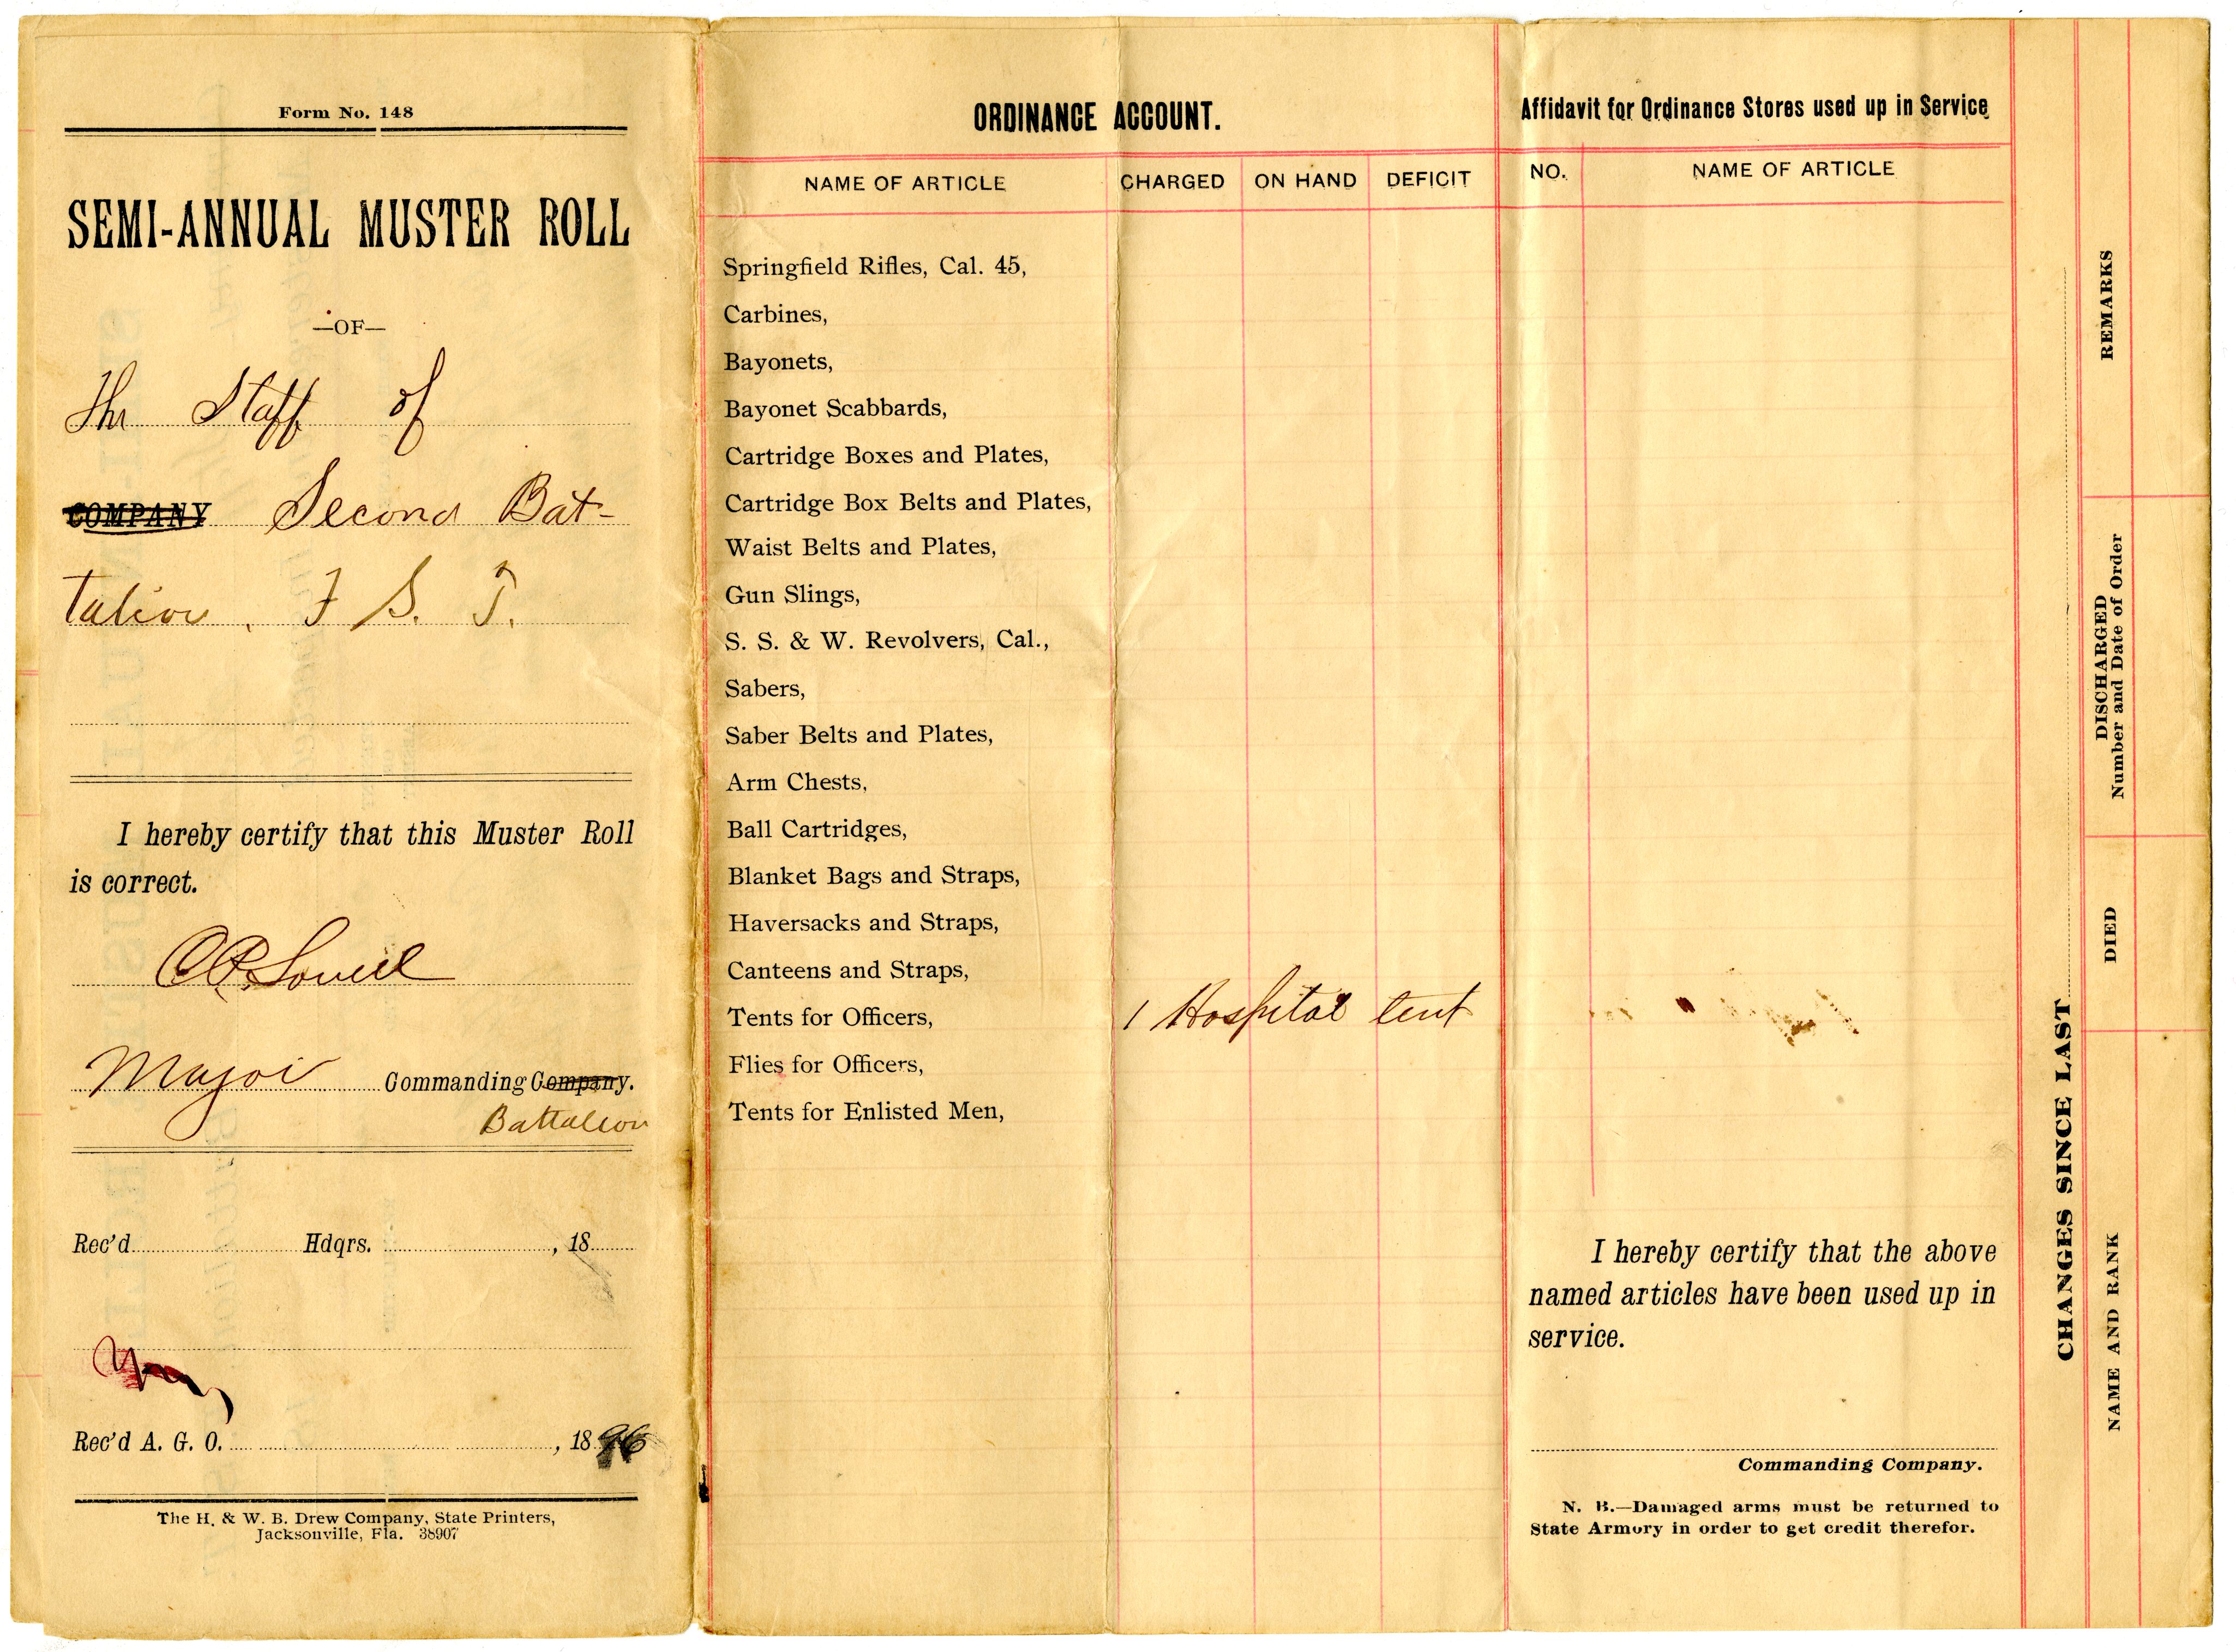 Form No. 148
SEMI-ANNUAL MUSTER ROLL
—OF—
The Staff of
COMPANY Second Bat-
talion. F S. T.
I hereby certify that this Muster Roll
is correct.
C.P. Lovell
Major Commanding Company.
Battalion
Rec'd Hdqrs. , 18
Rec'd A. G. O. , 1896
The H. & W. B. Drew Company, State Printers,
Jacksonville, Fla. 38907
ORDINANCE ACCOUNT.
NAME OF ARTICLE CHARGED ON HAND DEFICIT
Springfield Rifles, Cal. 45,
Carbines,
Bayonets,
Bayonet Scabbards,
Cartridge Boxes and Plates,
Cartridge Box Belts and Plates,
Waist Belts and Plates,
Gun Slings,
S. S. & W. Revolvers, Cal.,
Sabers,
Saber Belts and Plates,
Arm Chests,
Ball Cartridges,
Blanket Bags and Straps,
Haversacks and Straps,
Canteens and Straps,
Tents for Officers, 1 Hospital tent
Flies for Officers,
Tents for Enlisted Men,
Affidavit for Ordinance Stores used up in Service
NO. NAME OF ARTICLE
I hereby certify that the above
named articles have been used up in
service.
Commanding Company.
N. B.—Damaged arms must be returned to
State Armory in order to get credit therefor.
CHANGES SINCE LAST
NAME AND RANK
DIED
DISCHARGED
Number and Date of Order
REMARKS